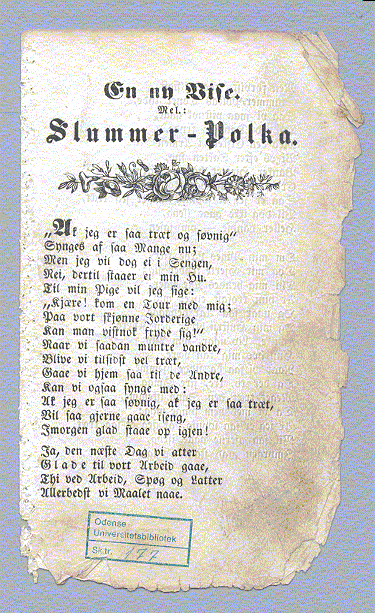 En ny Vise.
Mel.:
Slummer-Polka.
„Ak jeg er saa træt og søvnig“
Synges af saa Mange nu;
Men jeg vil dog ei i Sengen,
Nei, dertil staaer ei min Hu.
Til min Pige vil jeg sige:
„Kjære! kom en Tour med mig;
Paa vort skjønne Jorderige
Kan man vistnok fryde sig!“
Naar vi saadan muntre vandre,
Blive vi tilsidst vel træt,
Gaae vi hjem saa til de Andre,
Kan vi ogsaa synge med:
Ak jeg er saa søvnig, ak jeg er saa træt,
Vil saa gjerne gaae iseng,
Imorgen glad staae op igjen!
Ja, den næste Dag vi atter
Glade til vort Arbeid gaae,
Thi ved Arbeid, Spøg og Latter
Allerbedst vi Maalet naae.
Odense
Universitetsbibliotek
Sk.tr. 177